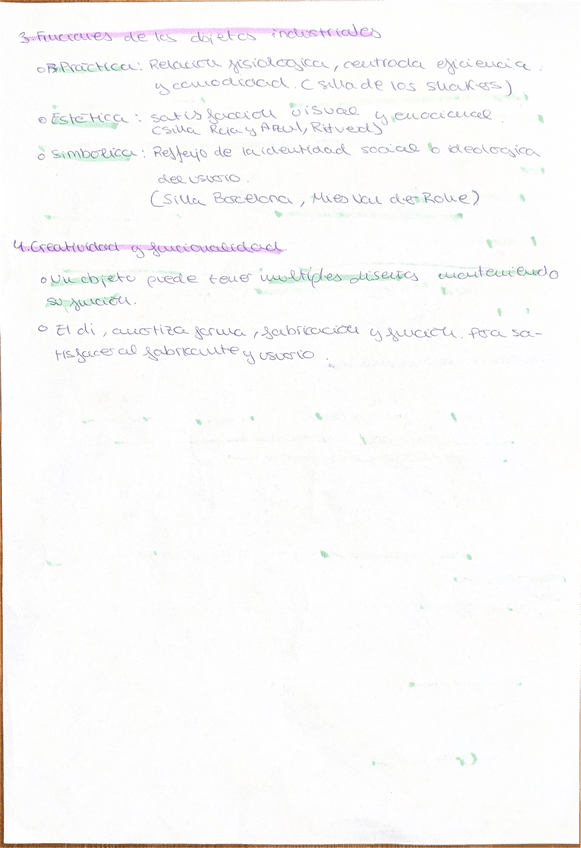 3. Funciones de los objetos industriales
Práctica: Relación fisiologica, centrada eficiencia
y comodidad. (silla de los shakers)
Estética: satisfacción visual y emocional.
(silla Roja y Azul, Ritveds)
simbolica: Reflejo de la identidad social o ideologica
del usuario.
(Silla Barcelona, Mies Van der Rohe)
4. Creatividad y funcionalidad
Un objeto puede tener multiples diseños manteniendo
su función.
El di, forma, fabricación y función. Para sa-
tisfacer al fabricante y usuario.